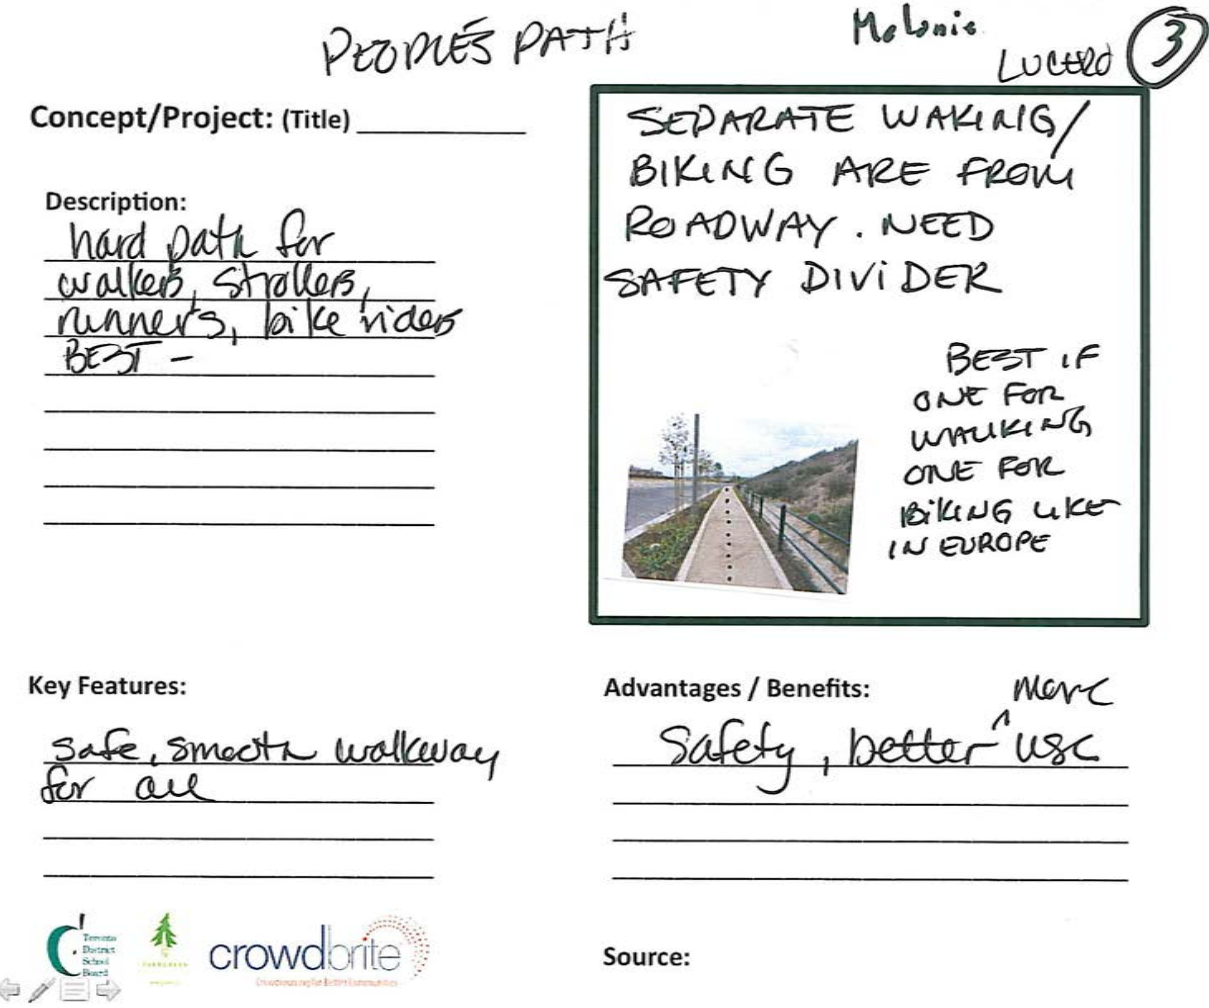 PEOPLE'S PATH
Melonie
LUCERO
3
Concept/Project: (Title)
Description:
hard path for
walkers, strollers,
runners, bike riders
BEST -
SEPARATE WAKING/
BIKING ARE FROM
ROADWAY. NEED
SAFETY DIVIDER
BEST IF
ONE FOR
WALKING
ONE FOR
BIKING LIKE
IN EUROPE
Key Features:
safe, smooth walkway
for all
Advantages / Benefits:
more
Safety, better ^ use
Toronto
District
School
Board
EVERGREEN
crowdbrite
Crowdsourcing for Better Communities
Source: